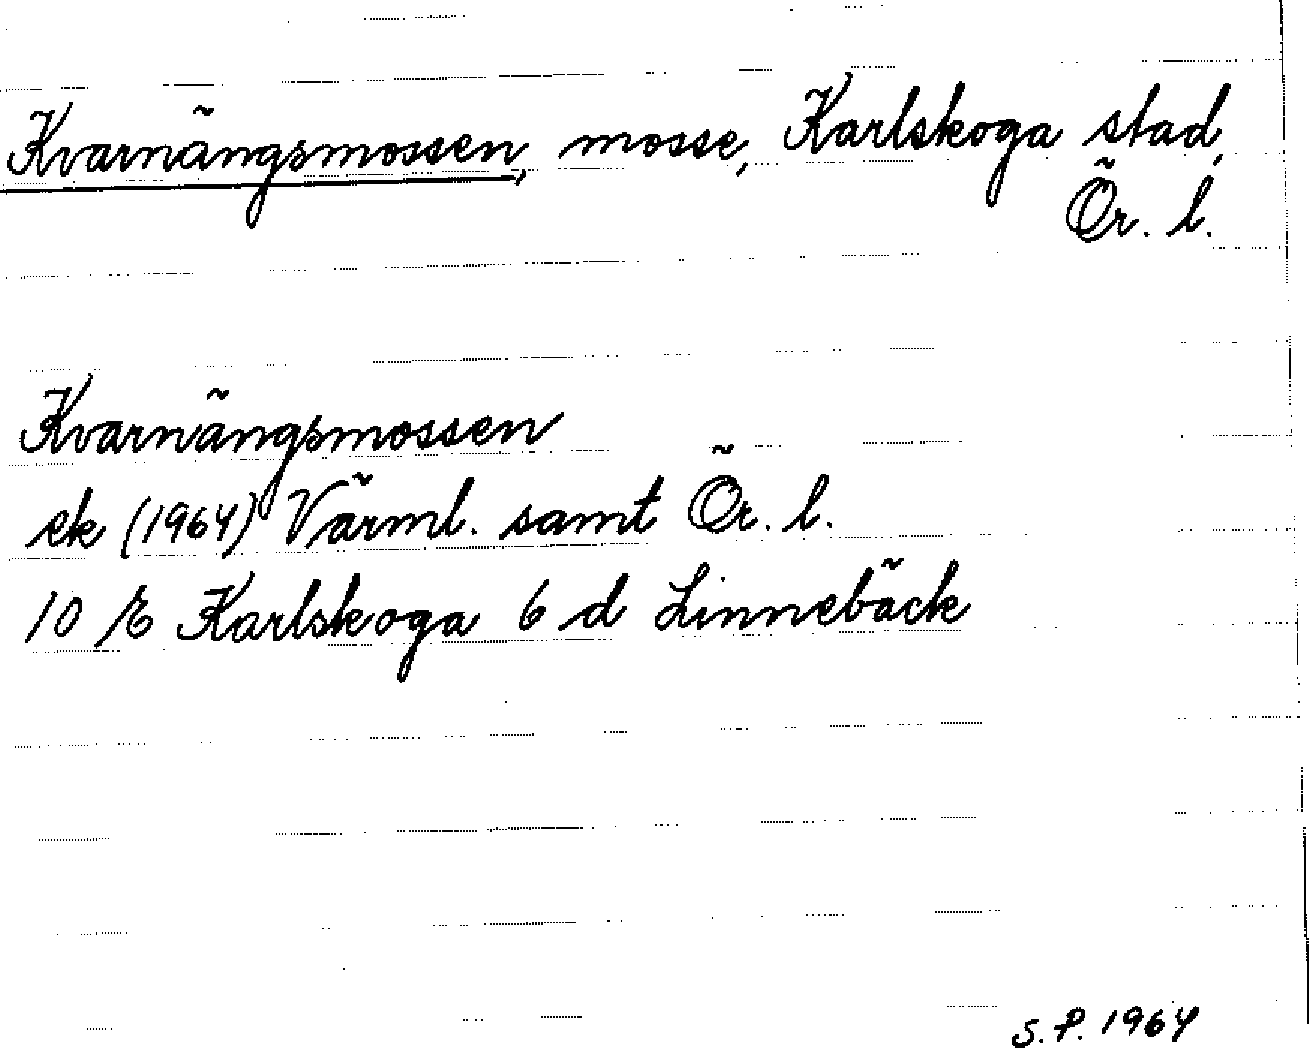 Kvarnängsmossen, mosse, Karlskoga stad,
Ör. l.
Kvarnängsmossen
ek (1964) Värml. samt Ör. l.
10 E Karlskoga 6 d Linnebäck
S.P. 1964